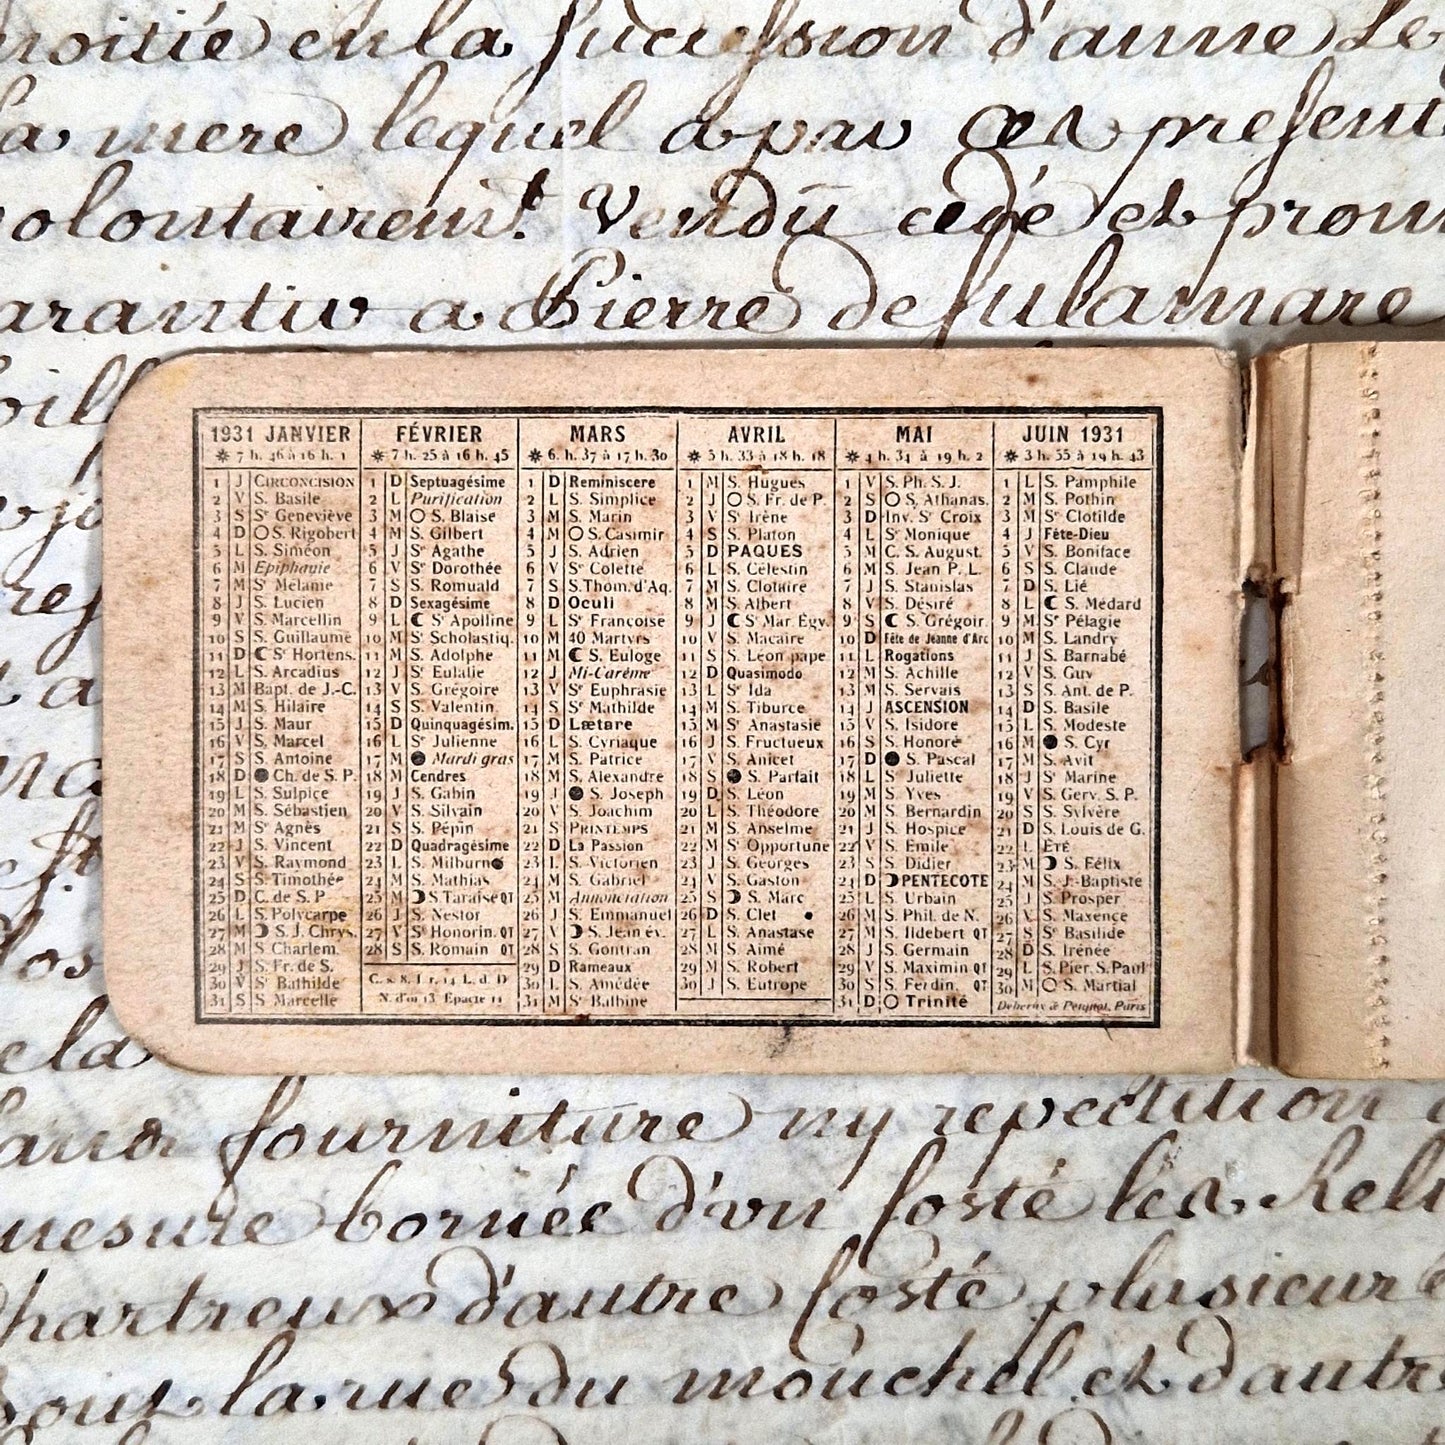 moitié en la succession d'anne Le
la mere lequel a par ces presente
volontairemt. Vendu cedé et prom
garantir a Pierre
1931 JANVIER
7 h. 46 à 16 h. 1
1 J CIRCONCISION
2 V S. Basile
3 S Se Geneviève
4 D S. Rigobert
5 L S. Siméon
6 M Epiphanie
7 M Se Mélanie
8 J S. Lucien
9 V S. Marcellin
10 S S. Guillaume
11 D Se Hortens.
12 L S. Arcadius
13 M Bapt. de J.-C.
14 M S. Hilaire
15 J S. Maur
16 V S. Marcel
17 S S. Antoine
18 D Ch. de S. P.
19 L S. Sulpice
20 M S. Sébastien
21 M Se Agnès
22 J S. Vincent
23 V S. Raymond
24 S S. Timothée
25 D C. de S. P.
26 L S. Polycarpe
27 M S. J. Chrys.
28 M S Charlem.
29 J S. Fr. de S.
30 V Se Bathilde
31 S S Marcelle
FÉVRIER
7 h. 25 à 16 h. 45
1 D Septuagésime
2 L Purification
3 M S. Blaise
4 M S. Gilbert
5 J Se Agathe
6 V Se Dorothée
7 S S. Romuald
8 D Sexagésime
9 L Se Apolline
10 M Se Scholastiq.
11 M S. Adolphe
12 J Se Eulalie
13 V S. Grégoire
14 S S. Valentin
15 D Quinquagésim.
16 L Se Julienne
17 M Mardi gras
18 M Cendres
19 J S. Gabin
20 V S. Silvain
21 S S. Pépin
22 D Quadragésime
23 L S. Milburne
24 M S. Mathias
25 M S. Taraise QT
26 J S. Nestor
27 V Se Honorin. QT
28 S S. Romain QT
C. s. 8, I r. 14 L. d. D
N. d'or 13 Epacte 11
MARS
6 h. 37 à 17 h. 30
1 D Reminiscere
2 L S. Simplice
3 M S. Marin
4 M S. Casimir
5 J S. Adrien
6 V Se Colette
7 S S. Thom. d'Aq.
8 D Oculi
9 L Se Françoise
10 M 40 Martyrs
11 M S. Euloge
12 J Mi-Carême
13 V Se Euphrasie
14 S Se Mathilde
15 D Lætare
16 L S. Cyriaque
17 M S. Patrice
18 M S. Alexandre
19 J S. Joseph
20 V S. Joachim
21 S PRINTEMPS
22 D La Passion
23 L S. Victorien
24 M S. Gabriel
25 M Annonciation
26 J S. Emmanuel
27 V S. Jean év.
28 S S. Gontran
29 D Rameaux
30 L S. Amédée
31 M Se Balbine
AVRIL
5 h. 33 à 18 h. 18
1 M S. Hugues
2 J S. Fr. de P.
3 V Se Irène
4 S S. Platon
5 D PAQUES
6 L S. Célestin
7 M S. Clotaire
8 M S. Albert
9 J Se Mar. Egy.
10 V S. Macaire
11 S S. Léon pape
12 D Quasimodo
13 L Se Ida
14 M S. Tiburce
15 M Se Anastasie
16 J S. Fructueux
17 V S. Anicet
18 S S. Parfait
19 D S. Léon
20 L S. Théodore
21 M S. Anselme
22 M Se Opportune
23 J S. Georges
24 V S. Gaston
25 S S. Marc
26 D S. Clet
27 L S. Anastase
28 M S. Aimé
29 M S. Robert
30 J S. Eutrope
MAI
4 h. 34 à 19 h. 2
1 V S. Ph. S. J.
2 S S. Athanas.
3 D Inv. Se Croix
4 L Se Monique
5 M C. S. August.
6 M S. Jean P. L.
7 J S. Stanislas
8 V S. Désiré
9 S S. Grégoir.
10 D Fête de Jeanne d'Arc
11 L Rogations
12 M S. Achille
13 M S. Servais
14 J ASCENSION
15 V S. Isidore
16 S S. Honoré
17 D S. Pascal
18 L Se Juliette
19 M S. Yves
20 M S. Bernardin
21 J S. Hospice
22 V S. Emile
23 S S. Didier
24 D PENTECOTE
25 L S. Urbain
26 M S. Phil. de N.
27 M S. Ildebert QT
28 J S. Germain
29 V S. Maximin QT
30 S S. Ferdin. QT
31 D Trinité
JUIN 1931
3 h. 55 à 19 h. 43
1 L S. Pamphile
2 M S. Pothin
3 M Se Clotilde
4 J Fête-Dieu
5 V S. Boniface
6 S S. Claude
7 D S. Lié
8 L S. Médard
9 M Se Pélagie
10 M S. Landry
11 J S. Barnabé
12 V S. Guy
13 S S. Ant. de P.
14 D S. Basile
15 L S. Modeste
16 M S. Cyr
17 M S. Avit
18 J Se Marine
19 V S. Gerv. S. P.
20 S S. Sylvère
21 D S. Louis de G.
22 L ÉTÉ
23 M S. Félix
24 M S. J.-Baptiste
25 J S. Prosper
26 V S. Maxence
27 S Se Basilide
28 D S. Irénée
29 L S. Pier. S. Paul
30 M S. Martial
Deberux & Peignot, Paris
fourniture ny repetition
mesure bornée d'un costé les
Chartreux d'autre costé plusieur
la rue du mouchel et d'autre